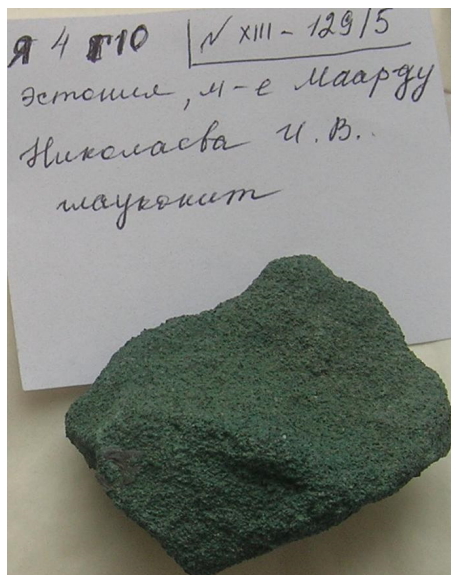 Я 4 Г10 № XIII - 129/5
Эстония, м-е Маарду
Николаева И. В.
глауконит